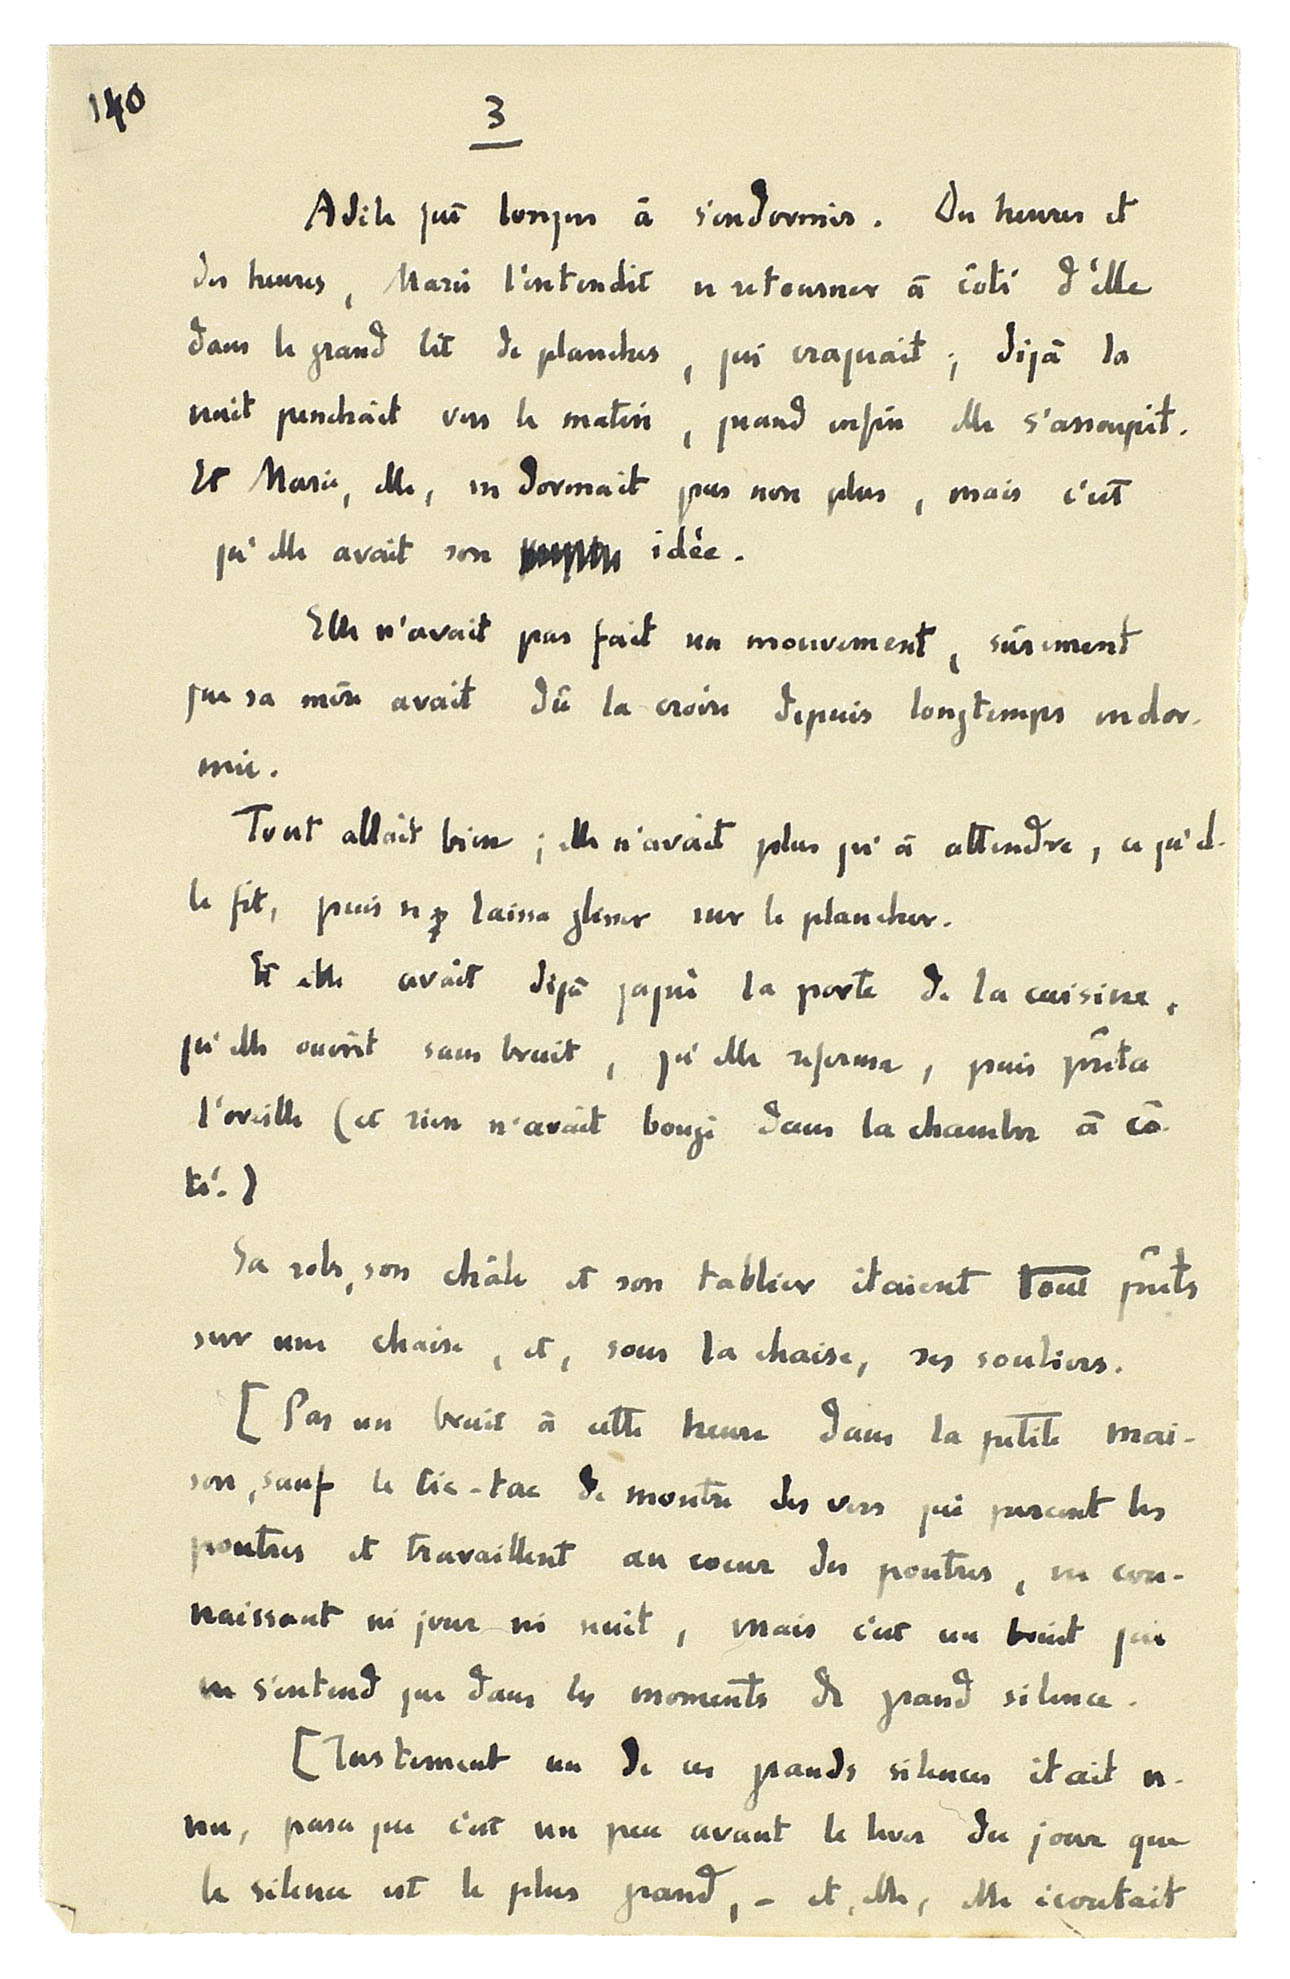 140
3
Adèle fut longue à s'endormir. Des heures et
des heures, Marie l'entendit se retourner à côté d'elle
dans le grand lit de planches, qui craquait ; déjà la
nuit penchait vers le matin, quand enfin elle s'assoupit.
Et Marie, elle, ne dormait pas non plus, mais c'est
qu'elle avait son idée.
Elle n'avait pas fait un mouvement, sûrement
que sa mère avait dû la croire depuis longtemps endor-
mie.
Tout allait bien ; elle n'avait plus qu'à attendre, ce qu'el-
le fit, puis se laissa glisser sur le plancher.
Et elle avait déjà gagné la porte de la cuisine,
qu'elle ouvrit sans bruit, qu'elle referma, puis prêta
l'oreille (et rien n'avait bougé dans la chambre à cô-
té.)
Sa robe, son châle et son tablier étaient tout prêts
sur une chaise, et, sous la chaise, ses souliers.
[Pas un bruit à cette heure dans la petite mai-
son, sauf le tic-tac de montre des vers qui percent les
poutres et travaillent au coeur des poutres, ne con-
naissant ni jour ni nuit, mais c'est un bruit qui
ne s'entend que dans les moments de grand silence.
[Justement un de ces grands silences était ve-
nu, parce que c'est un peu avant le lever du jour que
le silence est le plus grand, - et, elle, elle écoutait